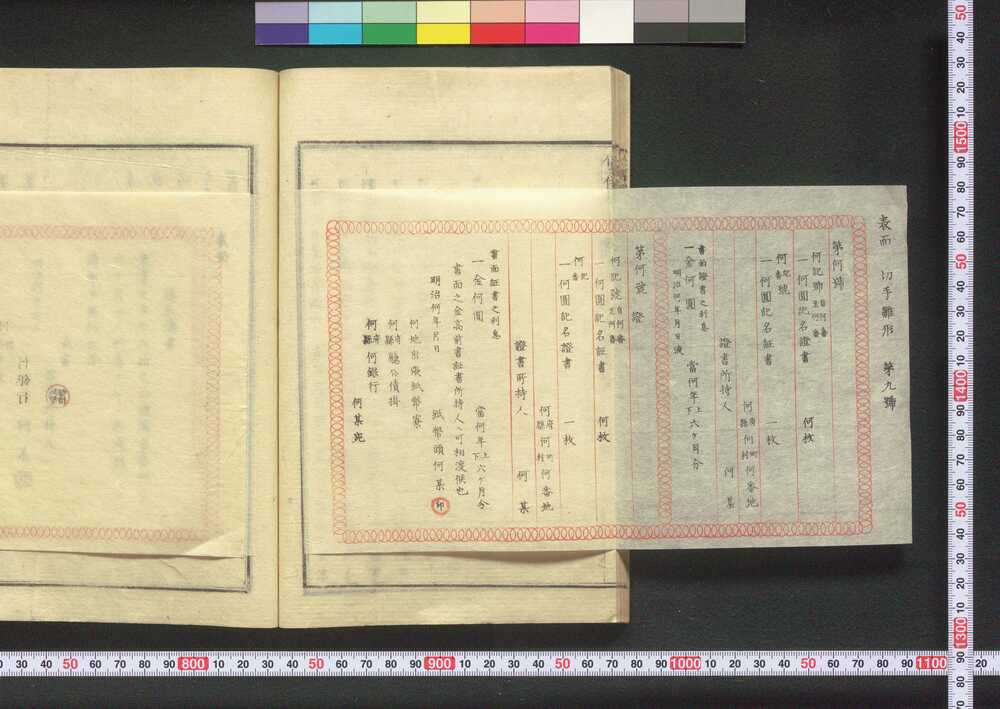 表面 切手雛形 第九號
第何號
何記號 自何番至何番
一何圓記名證書 何枚
何記番號
一何圓記名証書 一枚
何府縣何町村何番地
證書所持人 何某
書面證書之利息
一金何圓 當何年上下六ケ月分
明治何年月日渡
第何號 證
何記號 自何番至何番
一何圓記名証書 何枚
何記番
一何圓記名證書 一枚
何府縣何町村何番地
證書所持人 何某
書面証書之利息
一金何圓 當何年上下六ケ月分
書面之金高前書証書所持人ヘ可相渡候也
明治何年月日 紙幣頭何某 印
何地出張紙幣寮
何府縣廳公債掛
何府縣何銀行
何某宛